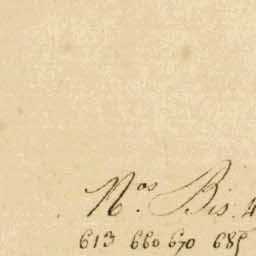 Nos. Bis. 4
613 660 670 685